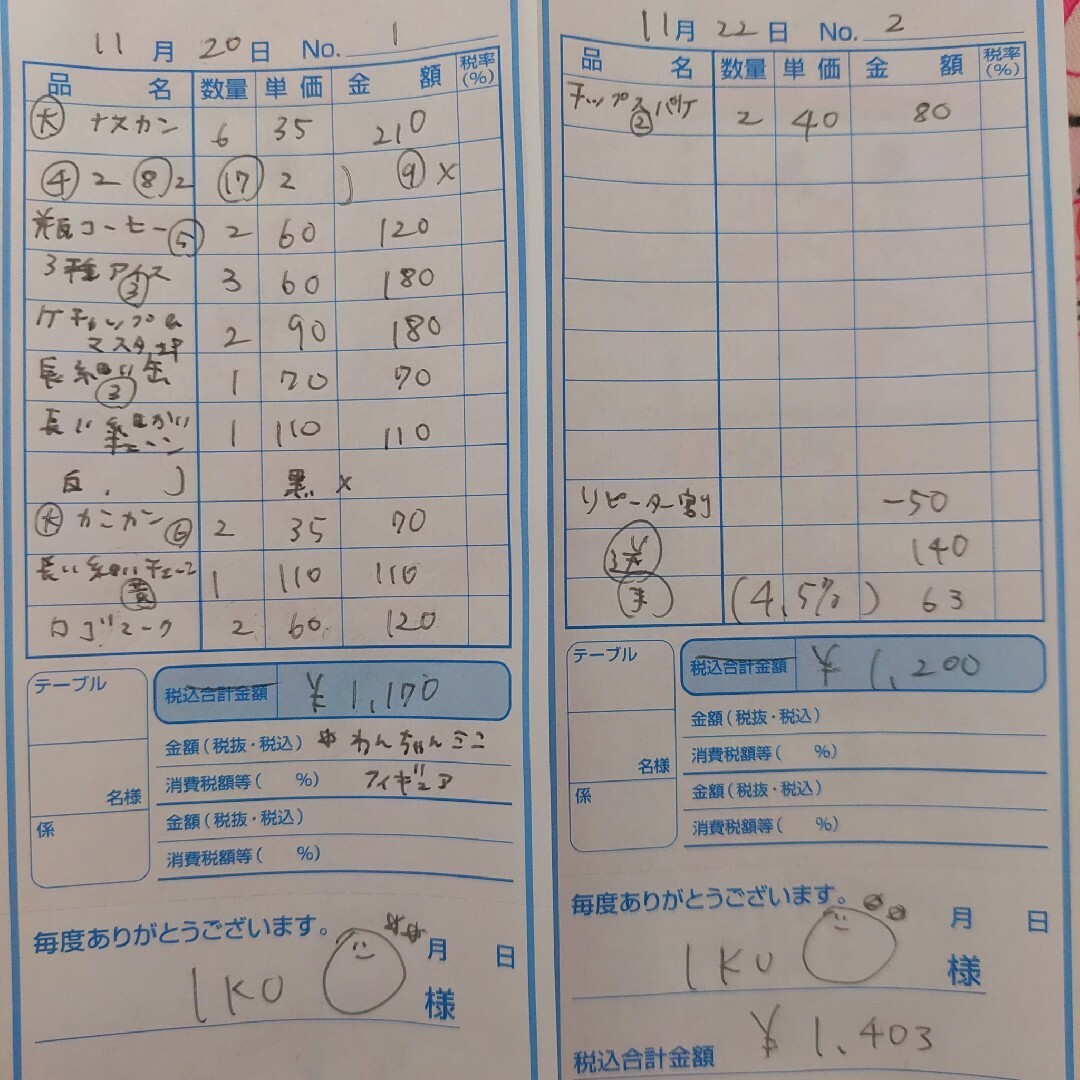 11月20日 No. 1
品名 数量 単価 金額 税率(%)
大 ナスカン 6 35 210
④2 ⑧2 ⑰ 2 ⑨ x
瓶コーヒー⑤ 2 60 120
3種アイス③ 3 60 180
ケチャップ&
マスタード 2 90 180
長細い缶③ 1 70 70
長い細かい
チェーン 1 110 110
黒 x
大 カニカン⑥ 2 35 70
長い細いチェーン
1 110 110
ロゴマーク 2 60 120
税込合計金額 ¥1,170
テーブル
金額(税抜・税込) わんちゃんミニ
消費税額等( %) フィギュア
名様
金額(税抜・税込)
係
消費税額等( %)
毎度ありがとうございます。
月 日
IKU 様
11月22日 No. 2
品名 数量 単価 金額 税率(%)
チップス②バケ 2 40 80
リピーター割 -50
送 140
手 (4.5%) 63
税込合計金額 ¥1,200
テーブル
金額(税抜・税込)
消費税額等( %)
名様
金額(税抜・税込)
係
消費税額等( %)
毎度ありがとうございます。
月 日
IKU 様
税込合計金額 ¥1.403